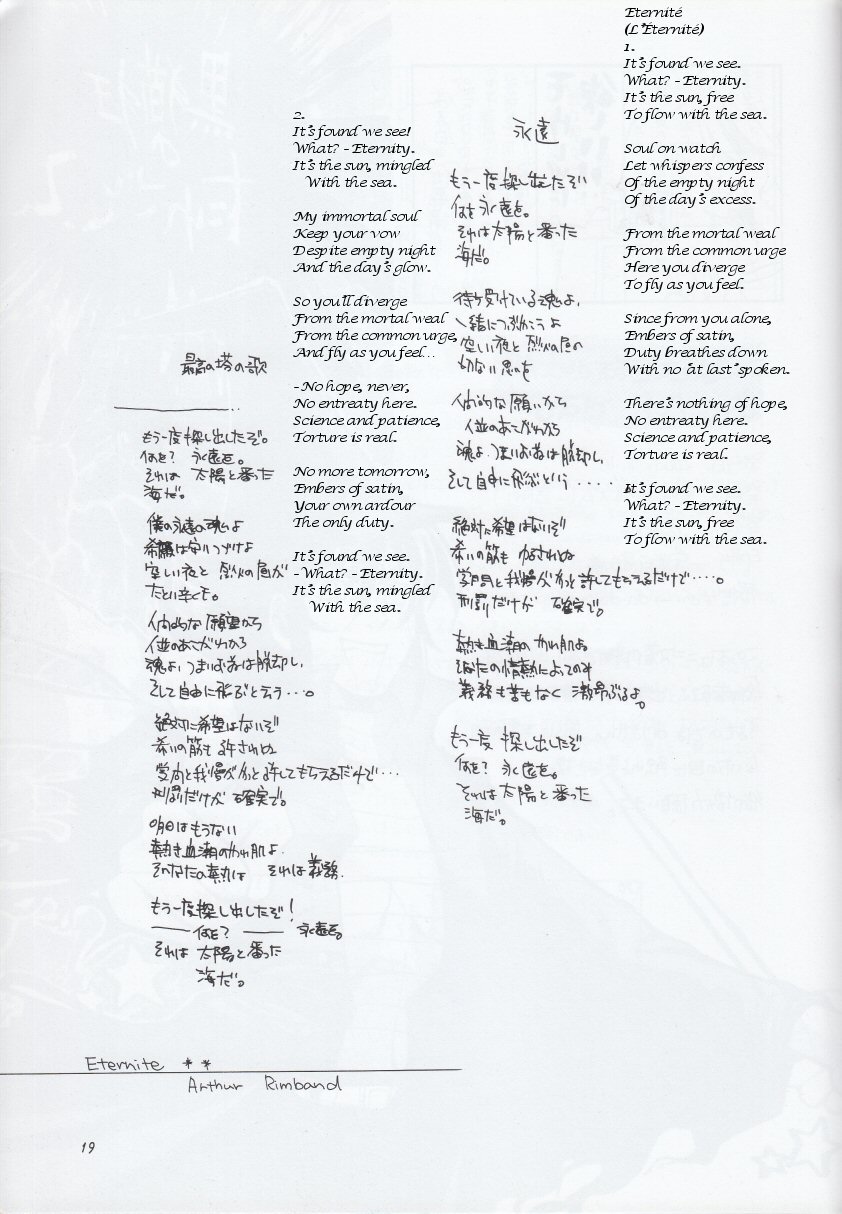 Eternité
(L'Éternité)
1.
It's found we see.
What? – Eternity.
It's the sun, free
To flow with the sea.
Soul on watch
Let whispers confess
Of the empty night
Of the day's excess.
From the mortal weal
From the common urge
Here you diverge
To fly as you feel.
Since from you alone,
Embers of satin,
Duty breathes down
With no 'at last' spoken.
There's nothing of hope,
No entreaty here.
Science and patience,
Torture is real.
It's found we see.
What? – Eternity.
It's the sun, free
To flow with the sea.
永遠
もう一度探し出したぞ
何を永遠を。
それは太陽と番った
海だ。
待ち受けている魂よ、
一緒につぶやこうよ
空しい夜と烈火の昼の
切ない思いを
人間的な願いから
人並のあこがれから
魂よ、つまりお前は脱却し、
そして自由に飛ぶという・・・・
絶対に希望はないぞ
希いの筋もゆるされぬ
学問と我慢がやっと許してもらえるだけで・・・・。
刑罰だけが 確実で。
熱き血潮のやわ肌よ
そなたの情熱によってのみ
義務も苦もなく 激昂ぶるよ。
もう一度 探し出したぞ
何を? 永遠を。
それは太陽と番った
海だ。
2.
It's found we see!
What? – Eternity.
It's the sun, mingled
With the sea.
My immortal soul
Keep your vow
Despite empty night
And the day's glow.
So you'll diverge
From the mortal weal
From the common urge,
And fly as you feel...
- No hope, never,
No entreaty here.
Science and patience,
Torture is real.
No more tomorrow,
Embers of satin,
Your own ardour
The only duty.
It's found we see.
- What? - Eternity.
It's the sun, mingled
With the sea.
最高の塔の歌
もう一度探し出したぞ。
何を? 永遠を。
それは 太陽と番った
海だ。
僕の永遠の魂よ
希願は守りつづけよ
空しい夜と 烈火の昼が
たとい辛くも。
人間的な願望から
人並のあこがれから
魂よ、つまりお前は脱却し、
そして自由に飛ぶと云う・・・。
絶対に希望はないぞ
希いの筋も許されぬ
学問と我慢がやっと許してもらえるだけで・・・
刑罰だけが 確実で。
明日はもうない
熱き血潮のやわ肌よ
そなたの熱は それは義務.
もう一度探し出したぞ!
―― 何を? ―― 永遠を。
それは 太陽と番った
海だ。
Eternite **
Arthur Rimband
19